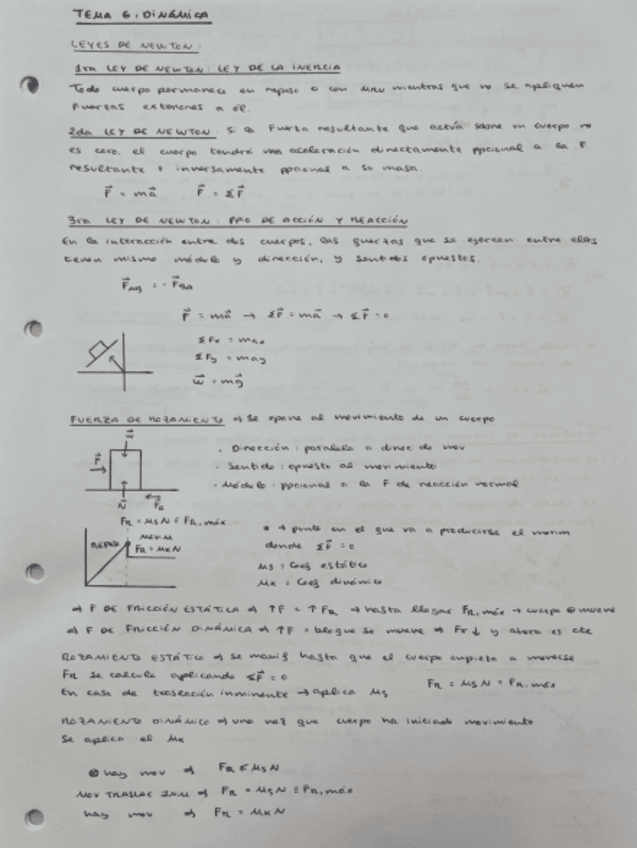 TEMA 6: DINÁMICA
LEYES DE NEWTON:
1ra LEY DE NEWTON: LEY DE LA INERCIA
Todo cuerpo permanece en reposo o con MRU mientras que no se apliquen
fuerzas exteriores a él.
2da LEY DE NEWTON: Si la Fuerza resultante que actúa sobre un cuerpo no
es cero, el cuerpo tendrá una aceleración directamente ppcional a la F
resultante e inversamente ppcional a su masa.
F⃗ = ma⃗    F⃗ = ΣF⃗
3ra LEY DE NEWTON: PPIO DE ACCIÓN Y REACCIÓN
En la interacción entre dos cuerpos, las fuerzas que se ejercen entre ellos
tienen mismo módulo y dirección, y sentidos opuestos.
F⃗AB = - F⃗BA
F⃗ = ma⃗ → ΣF⃗ = ma⃗ → ΣF⃗ = 0
ΣFx = max
ΣFy = may
w⃗ = mg⃗
FUERZA DE ROZAMIENTO ⇒ Se opone al movimiento de un cuerpo
w⃗
F⃗
N⃗
F⃗R
· Dirección: paralela a direc de mov
· Sentido: opuesto al movimiento
· Módulo: ppcional a la F de reacción normal
FR = μsN = FR, máx
REPOSO
MOVIM
FR = μkN
• → punto en el que va a producirse el movim
donde ΣF⃗ = 0
μs = coef estático
μk = coef dinámico
⇒ F DE FRICCIÓN ESTÁTICA ⇒ ↑F = ↑FR → hasta llegar FR, máx → cuerpo mueve
⇒ F DE FRICCIÓN DINÁMICA ⇒ ↑F = bloque se mueve ⇒ Fr ↓ y ahora es cte
ROZAMIENTO ESTÁTICO ⇒ se manif hasta que el cuerpo empieza a moverse
FR se calcula aplicando ΣF⃗ = 0    FR = μsN = FR, máx
En caso de inminente → aplica μs
ROZAMIENTO DINÁMICO ⇒ una vez que cuerpo ha iniciado movimiento
se aplica el μk
hay mov ⇒ FR ≤ μsN
MOV TRASLAC INM ⇒ FR = μsN = FR, máx
hay mov ⇒ FR = μkN